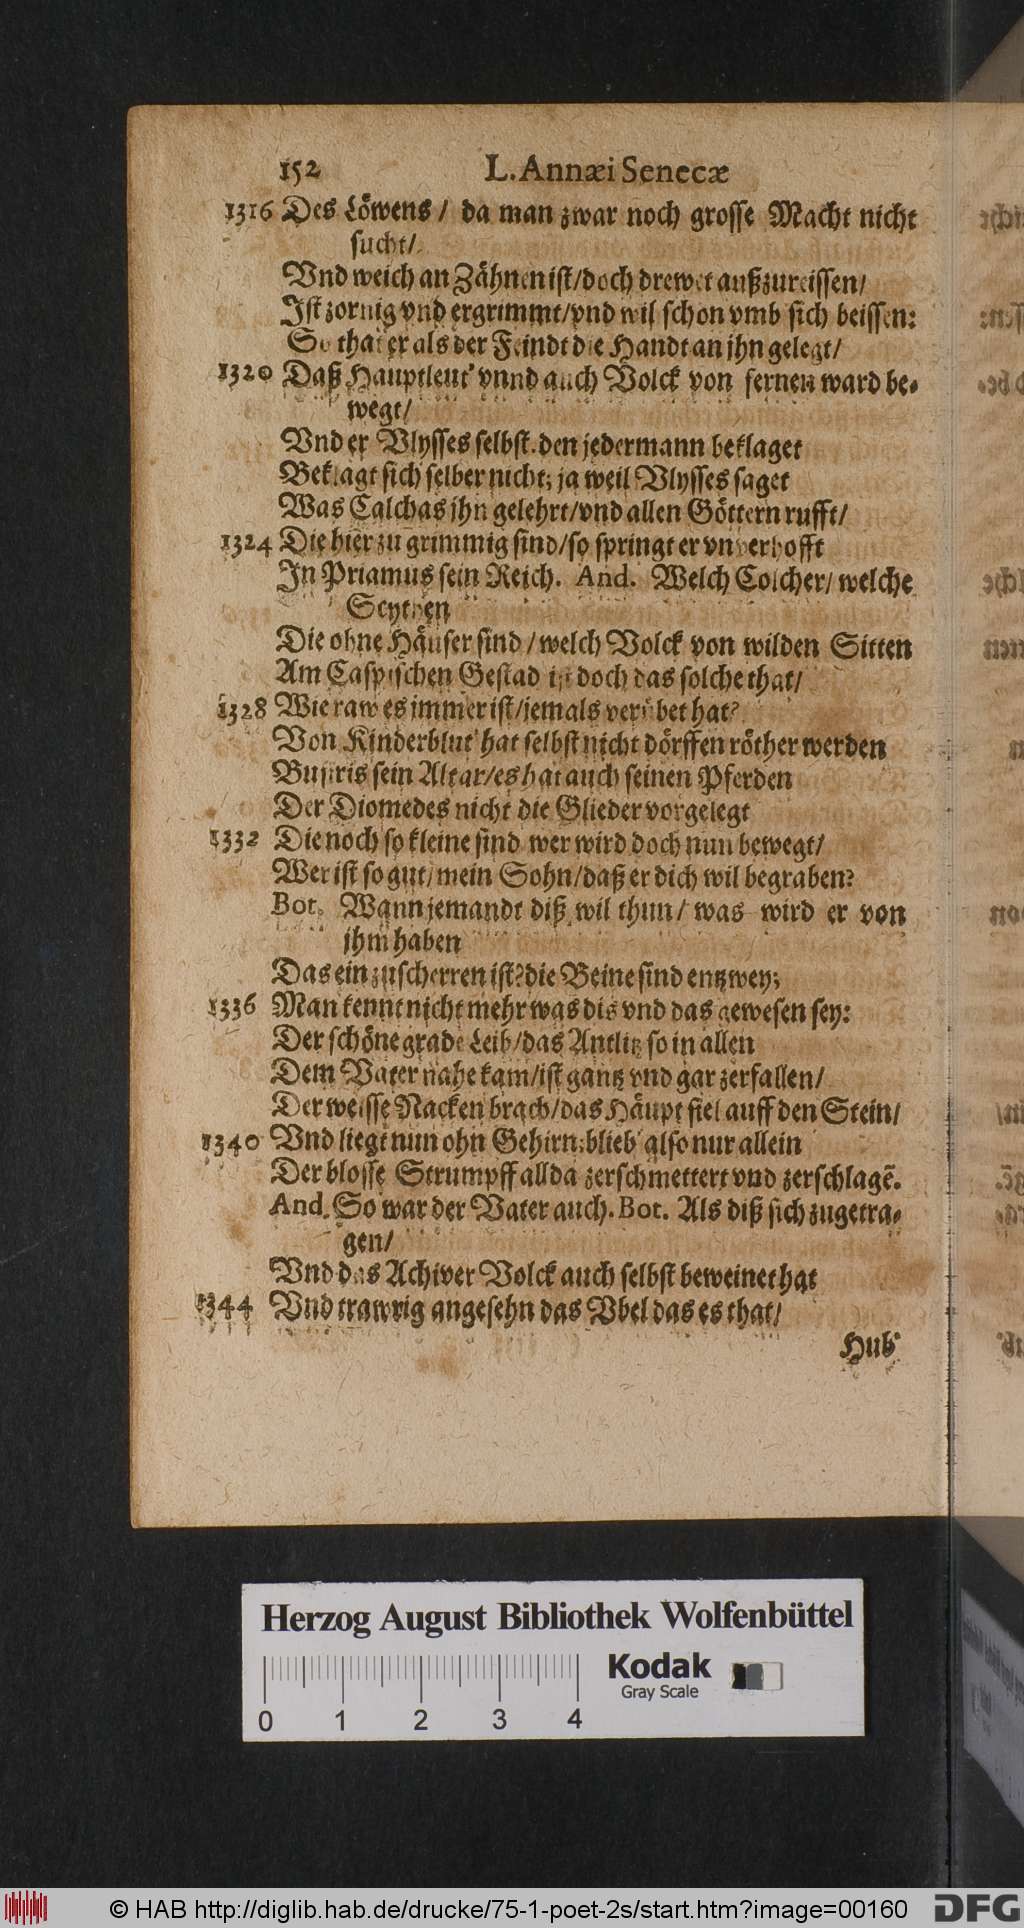 152 L. Annæi Senecæ
1316 Des Löwens / da man zwar noch grosse Macht nicht
sucht/
Vnd weich an Zähnen ist/doch drewet außzureissen/
Ist zornig vnd ergrimmt/vnd wil schon vmb sich beissen:
So that er als der Feindt die Handt an ihn gelegt/
1320 Daß Hauptleut' vnnd auch Volck von fernen ward be-
wegt/
Vnd er Vlysses selbst. den jedermann beklaget
Beklagt sich selber nicht; ja weil Vlysses saget
Was Calchas ihn gelehrt/vnd allen Göttern rufft/
1324 Die hier zu grimmig sind/so springt er vnverhofft
In Priamus sein Reich. And. Welch Colcher/ welche
Scythen
Die ohne Häuser sind / welch Volck von wilden Sitten
Am Caspischen Gestad ist doch das solche that/
1328 Wie raw es immer ist/jemals verübet hat?
Von Kinderblut' hat selbst nicht dörffen röther werden
Busiris sein Altar/es hat auch seinen Pferden
Der Diomedes nicht die Glieder vorgelegt
1332 Die noch so kleine sind wer wird doch nun bewegt/
Wer ist so gut/mein Sohn/daß er dich wil begraben?
Bot. Wann jemandt diß wil thun/ was wird er von
ihm haben
Das ein zuscherren ist? die Beine sind entzwey;
1336 Man kennt nicht mehr was dis vnd das gewesen sey:
Der schöne grade Leib/das Antlitz so in allen
Dem Vater nahe kam/ist gantz vnd gar zerfallen/
Der weisse Nacken brach/das Häupt fiel auff den Stein/
1340 Vnd liegt nun ohn Gehirn; blieb' also nur allein
Der blosse Strumpff allda zerschmettert vnd zerschlagẽ.
And. So war der Vater auch. Bot. Als diß sich zugetra-
gen/
Vnd das Achiver Volck auch selbst beweinet hat
1344 Vnd trawrig angesehn das Vbel das es that/
Hub'
Herzog August Bibliothek Wolfenbüttel
Kodak
Gray Scale
0 1 2 3 4
© HAB http://diglib.hab.de/drucke/75-1-poet-2s/start.htm?image=00160
DFG